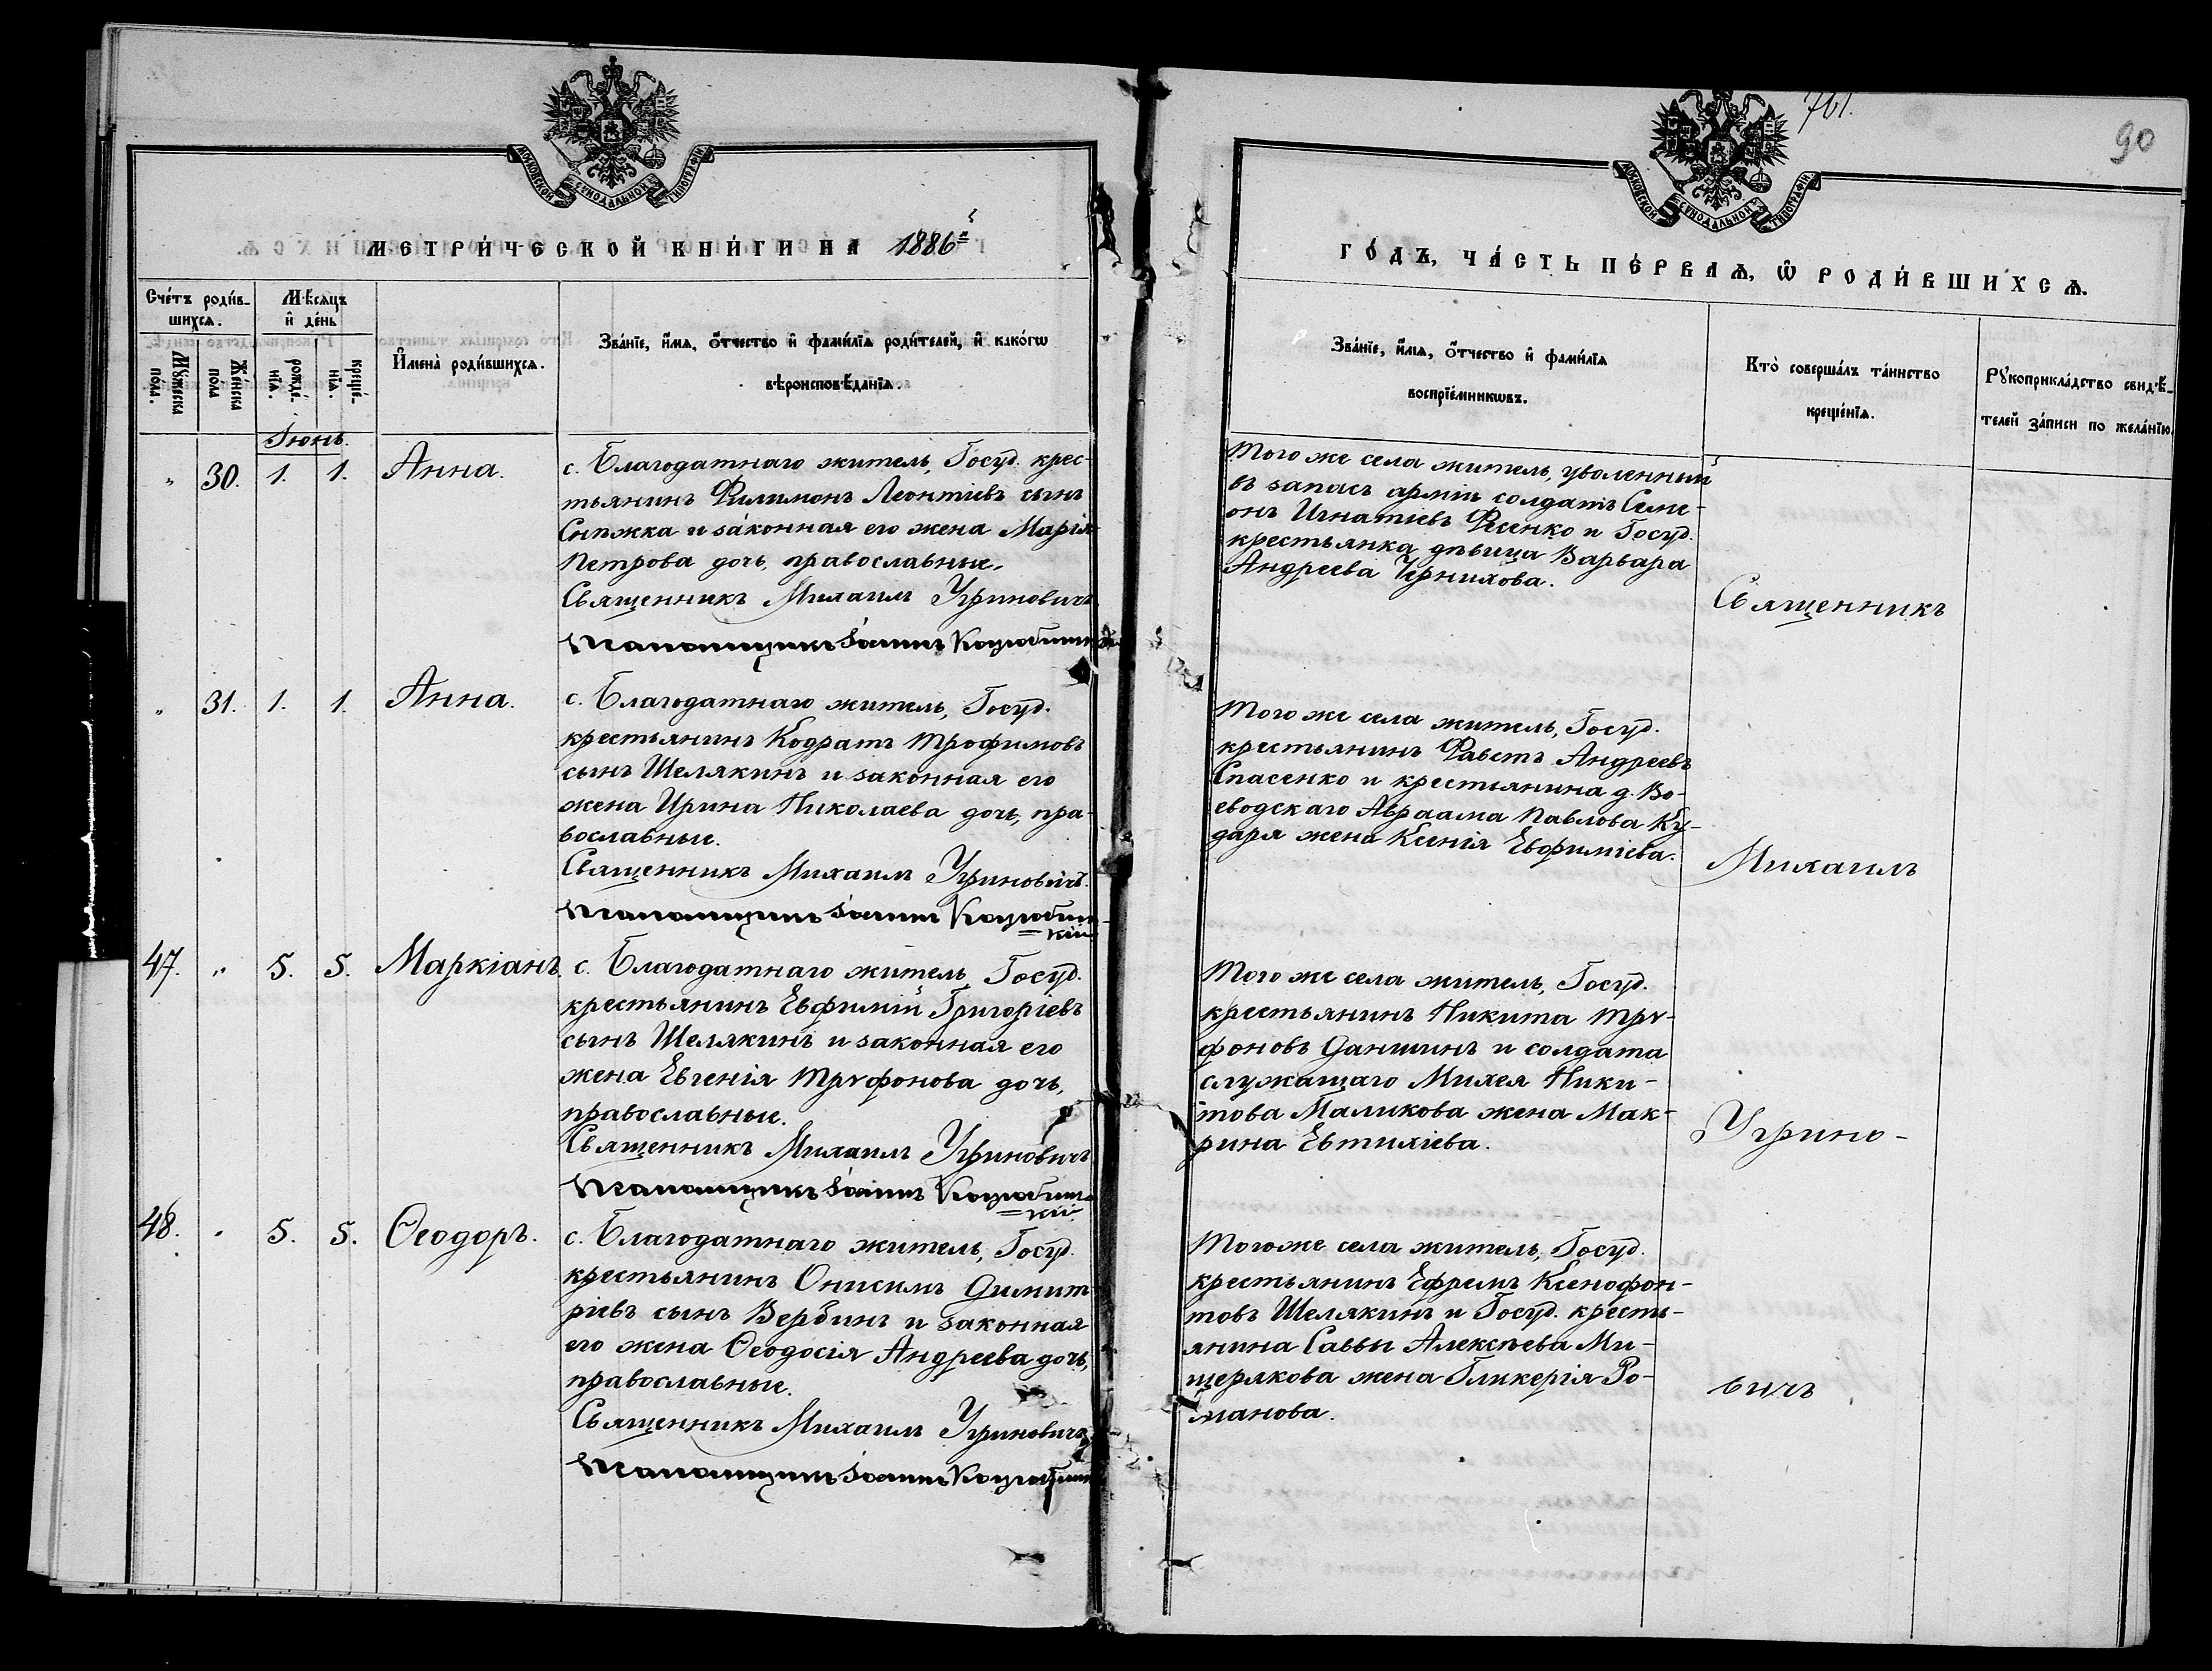 761.
90
МОСКОВСКОЙ СѴНОДАЛЬНОЙ ТИПОГРАФІИ
МОСКОВСКОЙ СѴНОДАЛЬНОЙ ТИПОГРАФІИ
МЕТРИ́ЧЕСКОЙ КНИ́ГИ НА 1886й
ГО́ДЪ, ЧА́СТЬ ПЕ́РВАѦ, Ѡ РОДИ́ВШИХСѦ.
Сче́тъ роди́в-
шихсѧ.
Мꙋ́жеска по́ла.
Же́нска пола
Мѣ́сѧцъ
и҆ де́нь
рожде́-
нїѧ.
креще́-
нїѧ.
И҆мена̀ роди́вшихсѧ.
Зва́нїе, и҆́мѧ, ѻ҆́тчество и҆ фами́лїѧ роди́телей, и҆ како́гѡ
вѣроисповѣ́данїѧ.
Зва́нїе, и҆́мѧ, ѻ҆́тчество и҆ фами́лїѧ
воспрїе́мникѡвъ.
Кто̀ соверша́лъ та́инство
креще́нїѧ.
Рꙋкоприкла́дство свидѣ́-
телей за́писи по жела́нїю.
Іюнь.
„ 30. 1. 1. Анна.
с. Благодатнаго житель, Госуд. крес-
тьянинъ Филимонъ Леонтіевъ сынъ
Снѣжка и законная его жена Марія
Петрова дочь, православные.
Священникъ Михаилъ Угриновичъ
Псаломщикъ Іоаннъ Коцюбин
Того же села житель, уволенный
въ запасъ арміи солдатъ Симе-
онъ Игнатіевъ Фесенко и Госуд.
крестьянка дѣвица Варвара
Андреева Чернихова.
Священникъ
„ 31. 1. 1. Анна.
с. Благодатнаго житель, Госуд.
крестьянинъ Кодратъ Трофимовъ
сынъ Шелякинъ и законная его
жена Ирина Николаева дочь, пра-
вославные.
Священникъ Михаилъ Угриновичъ.
Псаломщикъ Іоаннъ Коцюбин-
кій
Того же села житель, Госуд.
крестьянинъ Фавстъ Андреевъ
Спасенко и крестьянина д. Во-
еводскаго Авраама Павлова Ку-
даря жена Ксенія Евфиміева.
Михаилъ
47. „ 5. 5. Маркіанъ.
с. Благодатнаго житель, Госуд.
крестьянинъ Евфимій Григоріевъ
сынъ Шелякинъ и законная его
жена Евгенія Трѵфонова дочь,
православные.
Священникъ Михаилъ Угриновичъ
Псаломщикъ Іоаннъ Коцюбин-
кій
Того же села житель, Госуд.
крестьянинъ Никита Трѵ-
фоновъ Даншинъ и солдата
служащаго Михея Ники-
това Маликова жена Мак-
рина Евтихіева.
Угрино-
48. „ 5. 5. Ѳеодоръ.
с. Благодатнаго житель, Госуд.
крестьянинъ Онисимъ Димит-
ріевъ сынъ Вербинъ и законная
его жена Ѳеодосія Андреева дочь,
православные.
Священникъ Михаилъ Угриновичъ
Псаломщикъ Іоаннъ Коцюбин
Того же села житель, Госуд.
крестьянинъ Ефремъ Ксенофон-
товъ Шелякинъ и Госуд. кресть-
янина Саввы Алексѣева Ми-
щерякова жена Гликерія Ро-
манова.
вичъ